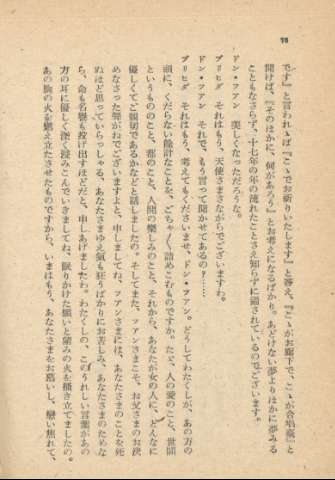 78
です』と言われゝば『こゝでお祈りいたします』と答え、『こゝがお廊下で、こゝが合唱壇』と
聞けば、『そのほかに、何があろう』とお考えになるばかり。あどけない夢よりほかに夢みる
こともなさらず、十七年の年の流れたことさえ知らずに過されているのでございます。
ドン・フアン 美しくなっただろうな。
ブリヒダ それはもう、天使さまさながらでございますわ。
ドン・フアン それで、もう言って聞かせてあるの?……
ブリヒダ それはもう、考えてもくださいませ、ドン・フアン。どうしてわたくしが、あの方の
頭に、くだらない餘計なことを、ごちゃ〱詰めこむものですか。たゞ、人の愛のこと、世間
というもののこと、都のこと、人間の樂しみのこと、それから、あなたが女の人に、どんなに
優しくてご親切であるかなどと話しましたの。そしてまた、フアンさまこそ、お父さまのお決
めなさった聟がねでございますよと、申しましてね、フアンさまには、あなたさまのことを死
ぬほど思っていらっしゃる、あなたさまゆえ氣も狂うばかりにお苦しみ、あなたさまのためな
ら、命も名譽も投げ出すほどだと、申しあげましたわ。わたくしの、このうれしい言葉があの
方の耳に優しく深く浸みこんでいきましてね、眠りかけた願いと望みの火を搔き立てましたの。
あの胸の火を燃え立たさせたものですから、いまはもう、あなたさまをお慕いし、戀い焦れて、